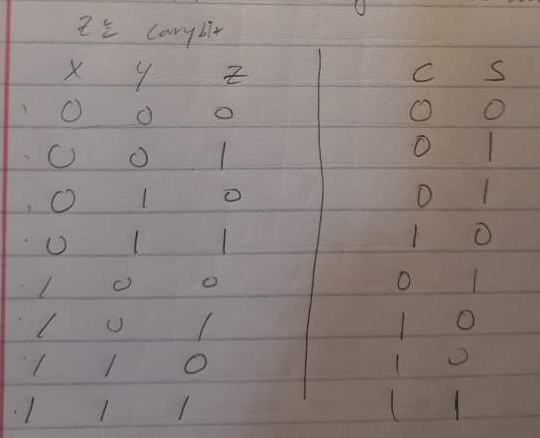 Z = carybit
X Y Z C S
0 0 0 0 0
0 0 1 0 1
0 1 0 0 1
0 1 1 1 0
1 0 0 0 1
1 0 1 1 0
1 1 0 1 0
1 1 1 1 1